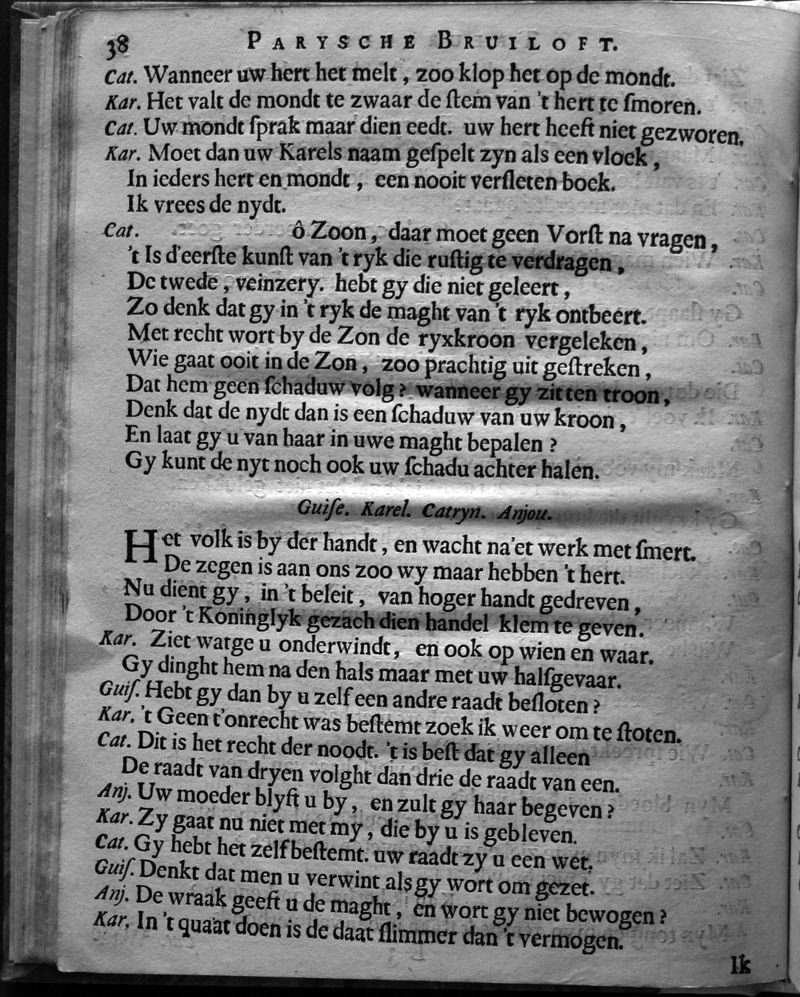 38 PARYSCHE BRUILOFT.
Cat. Wanneer uw hert het melt, zoo klop het op de mondt.
Kar. Het valt de mondt te zwaar de ſtem van 't hert te ſmoren.
Cat. Uw mondt ſprak maar dien eedt. uw hert heeft niet gezworen.
Kar. Moet dan uw Karels naam geſpelt zyn als een vloek,
In ieders hert en mondt, een nooit verſleten boek.
Ik vrees de nydt.
Cat. ô Zoon, daar moet geen Vorſt na vragen,
't Is d'eerſte kunſt van 't ryk die ruſtig te verdragen,
De twede, veinzery. hebt gy die niet geleert,
Zo denk dat gy in 't ryk de maght van 't ryk ontbeert.
Met recht wort by de Zon de ryxkroon vergeleken,
Wie gaat ooit in de Zon, zoo prachtig uit geſtreken,
Dat hem geen ſchaduw volg? wanneer gy zit ten troon,
Denk dat de nydt dan is een ſchaduw van uw kroon,
En laat gy u van haar in uwe maght bepalen?
Gy kunt de nyt noch ook uw ſchadu achter halen.
Guiſe. Karel. Catryn. Anjou.
Het volk is by der handt, en wacht na'et werk met ſmert.
De zegen is aan ons zoo wy maar hebben 't hert.
Nu dient gy, in 't beleit, van hoger handt gedreven,
Door 't Koninglyk gezach dien handel klem te geven.
Kar. Ziet watge u onderwindt, en ook op wien en waar.
Gy dinght hem na den hals maar met uw halfgevaar.
Guiſ. Hebt gy dan by u zelf een andre raadt beſloten?
Kar. 't Geen t'onrecht was beſtemt zoek ik weer om te ſtoten.
Cat. Dit is het recht der noodt. 't is beſt dat gy alleen
De raadt van dryen volght dan drie de raadt van een.
Anj. Uw moeder blyft u by, en zult gy haar begeven?
Kar. Zy gaat nu niet met my, die by u is gebleven.
Cat. Gy hebt het zelf beſtemt. uw raadt zy u een wet.
Guiſ. Denkt dat men u verwint als gy wort om gezet.
Anj. De wraak geeft u de maght, en wort gy niet bewogen?
Kar. In 't quaat doen is de daat ſlimmer dan 't vermogen.
Ik